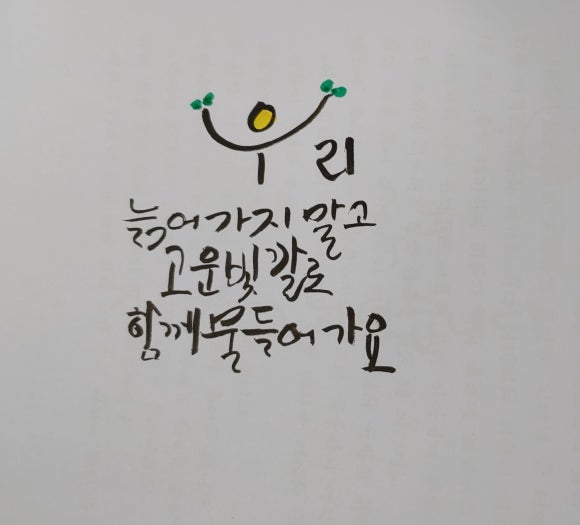 우리
늙어가지 말고
고운빛깔로
함께물들어가요